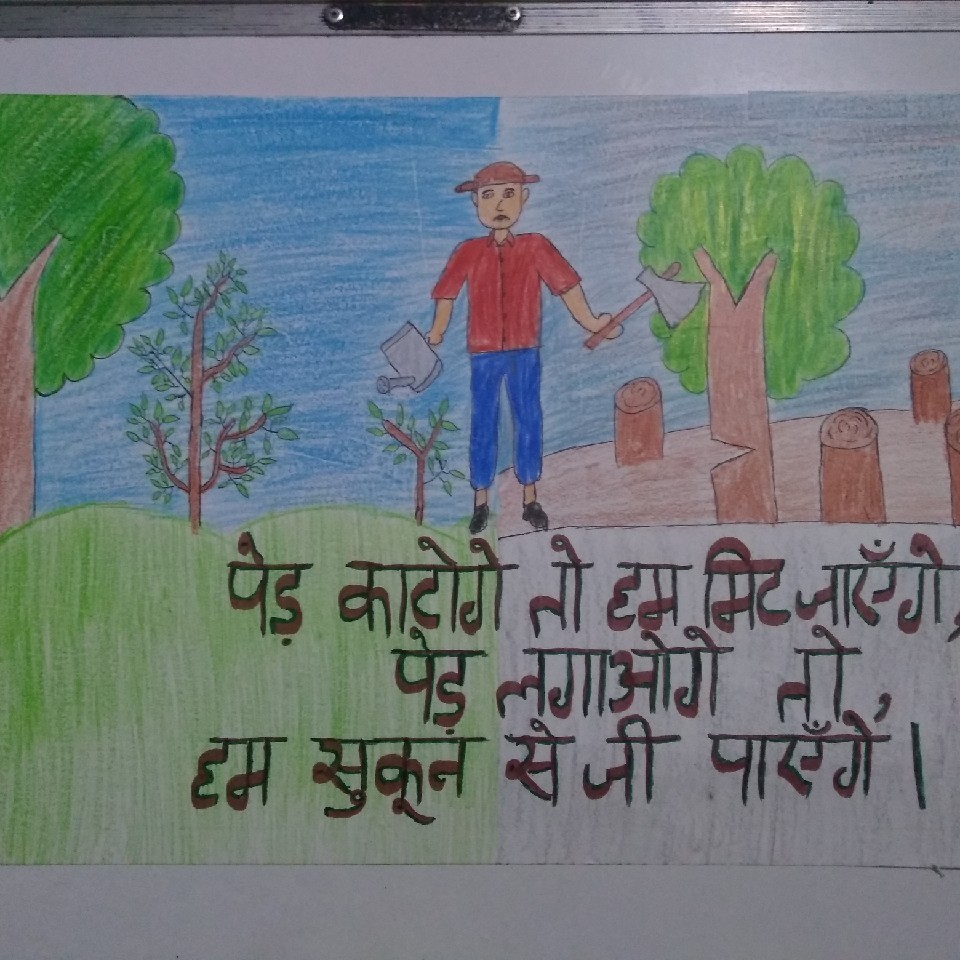 पेड़ काटोगे तो हम मिट जाएँगे,
पेड़ लगाओगे तो,
हम सुकून से जी पाएँगे।